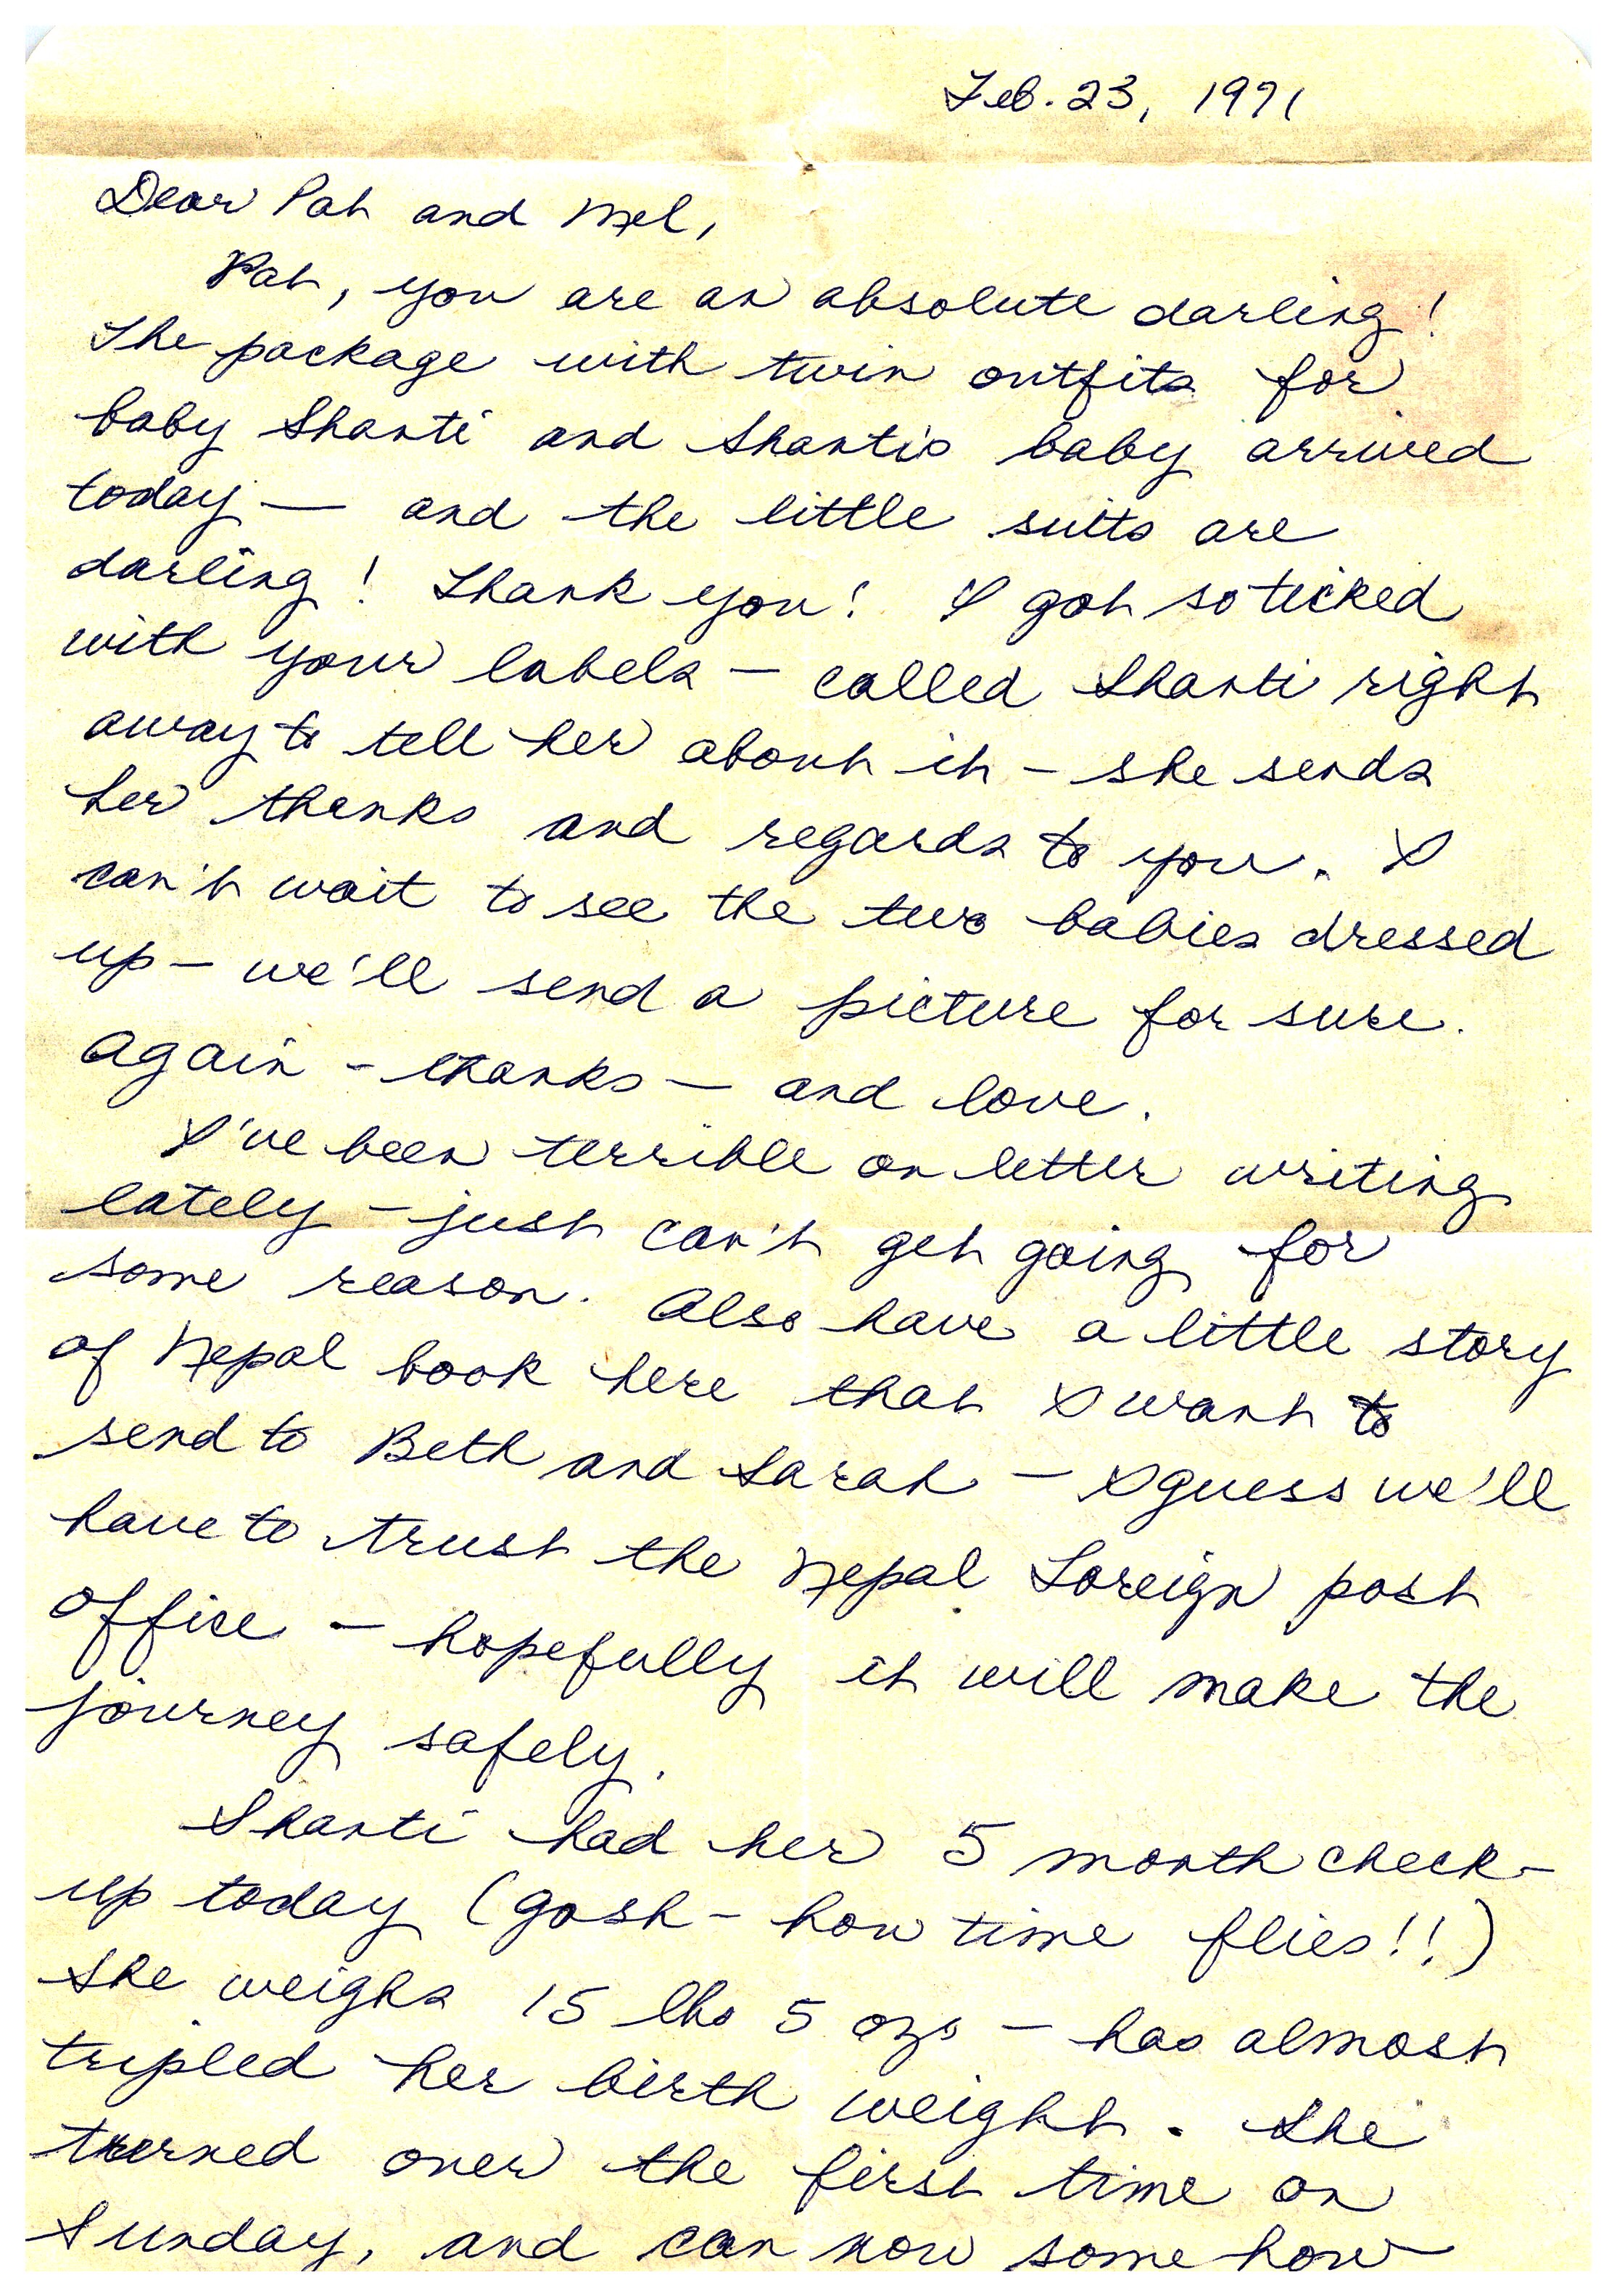 Feb. 23, 1971
Dear Pat and Mel,
Pat, you are an absolute darling!
The package with twin outfits for
baby Shanti and Shanti's baby arrived
today — and the little suits are
darling! Thank you! I got so ticked
with your labels — called Shanti right
away to tell her about it — she sends
her thanks and regards to you. I
can't wait to see the two babies dressed
up — we'll send a picture for sure.
Again - thanks — and love.
I've been terrible on letter writing
lately — just can't get going for
some reason. Also have a little story
of Nepal book here that I want to
send to Beth and Sarah — I guess we'll
have to trust the Nepal Foreign post
office — hopefully it will make the
journey safely.
Shanti had her 5 month check-
up today (gosh - how time flies!!)
She weighs 15 lbs 5 ozs — has almost
tripled her birth weight. She
turned over the first time on
Sunday, and can now somehow